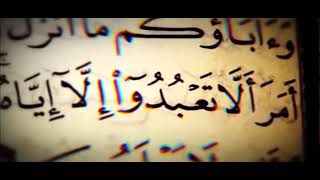 وَءَابَآؤُكُم مَّآ أَنزَلَ
أَمَرَ أَلَّا تَعْبُدُوٓا۟ إِلَّآ إِيَّاهُ